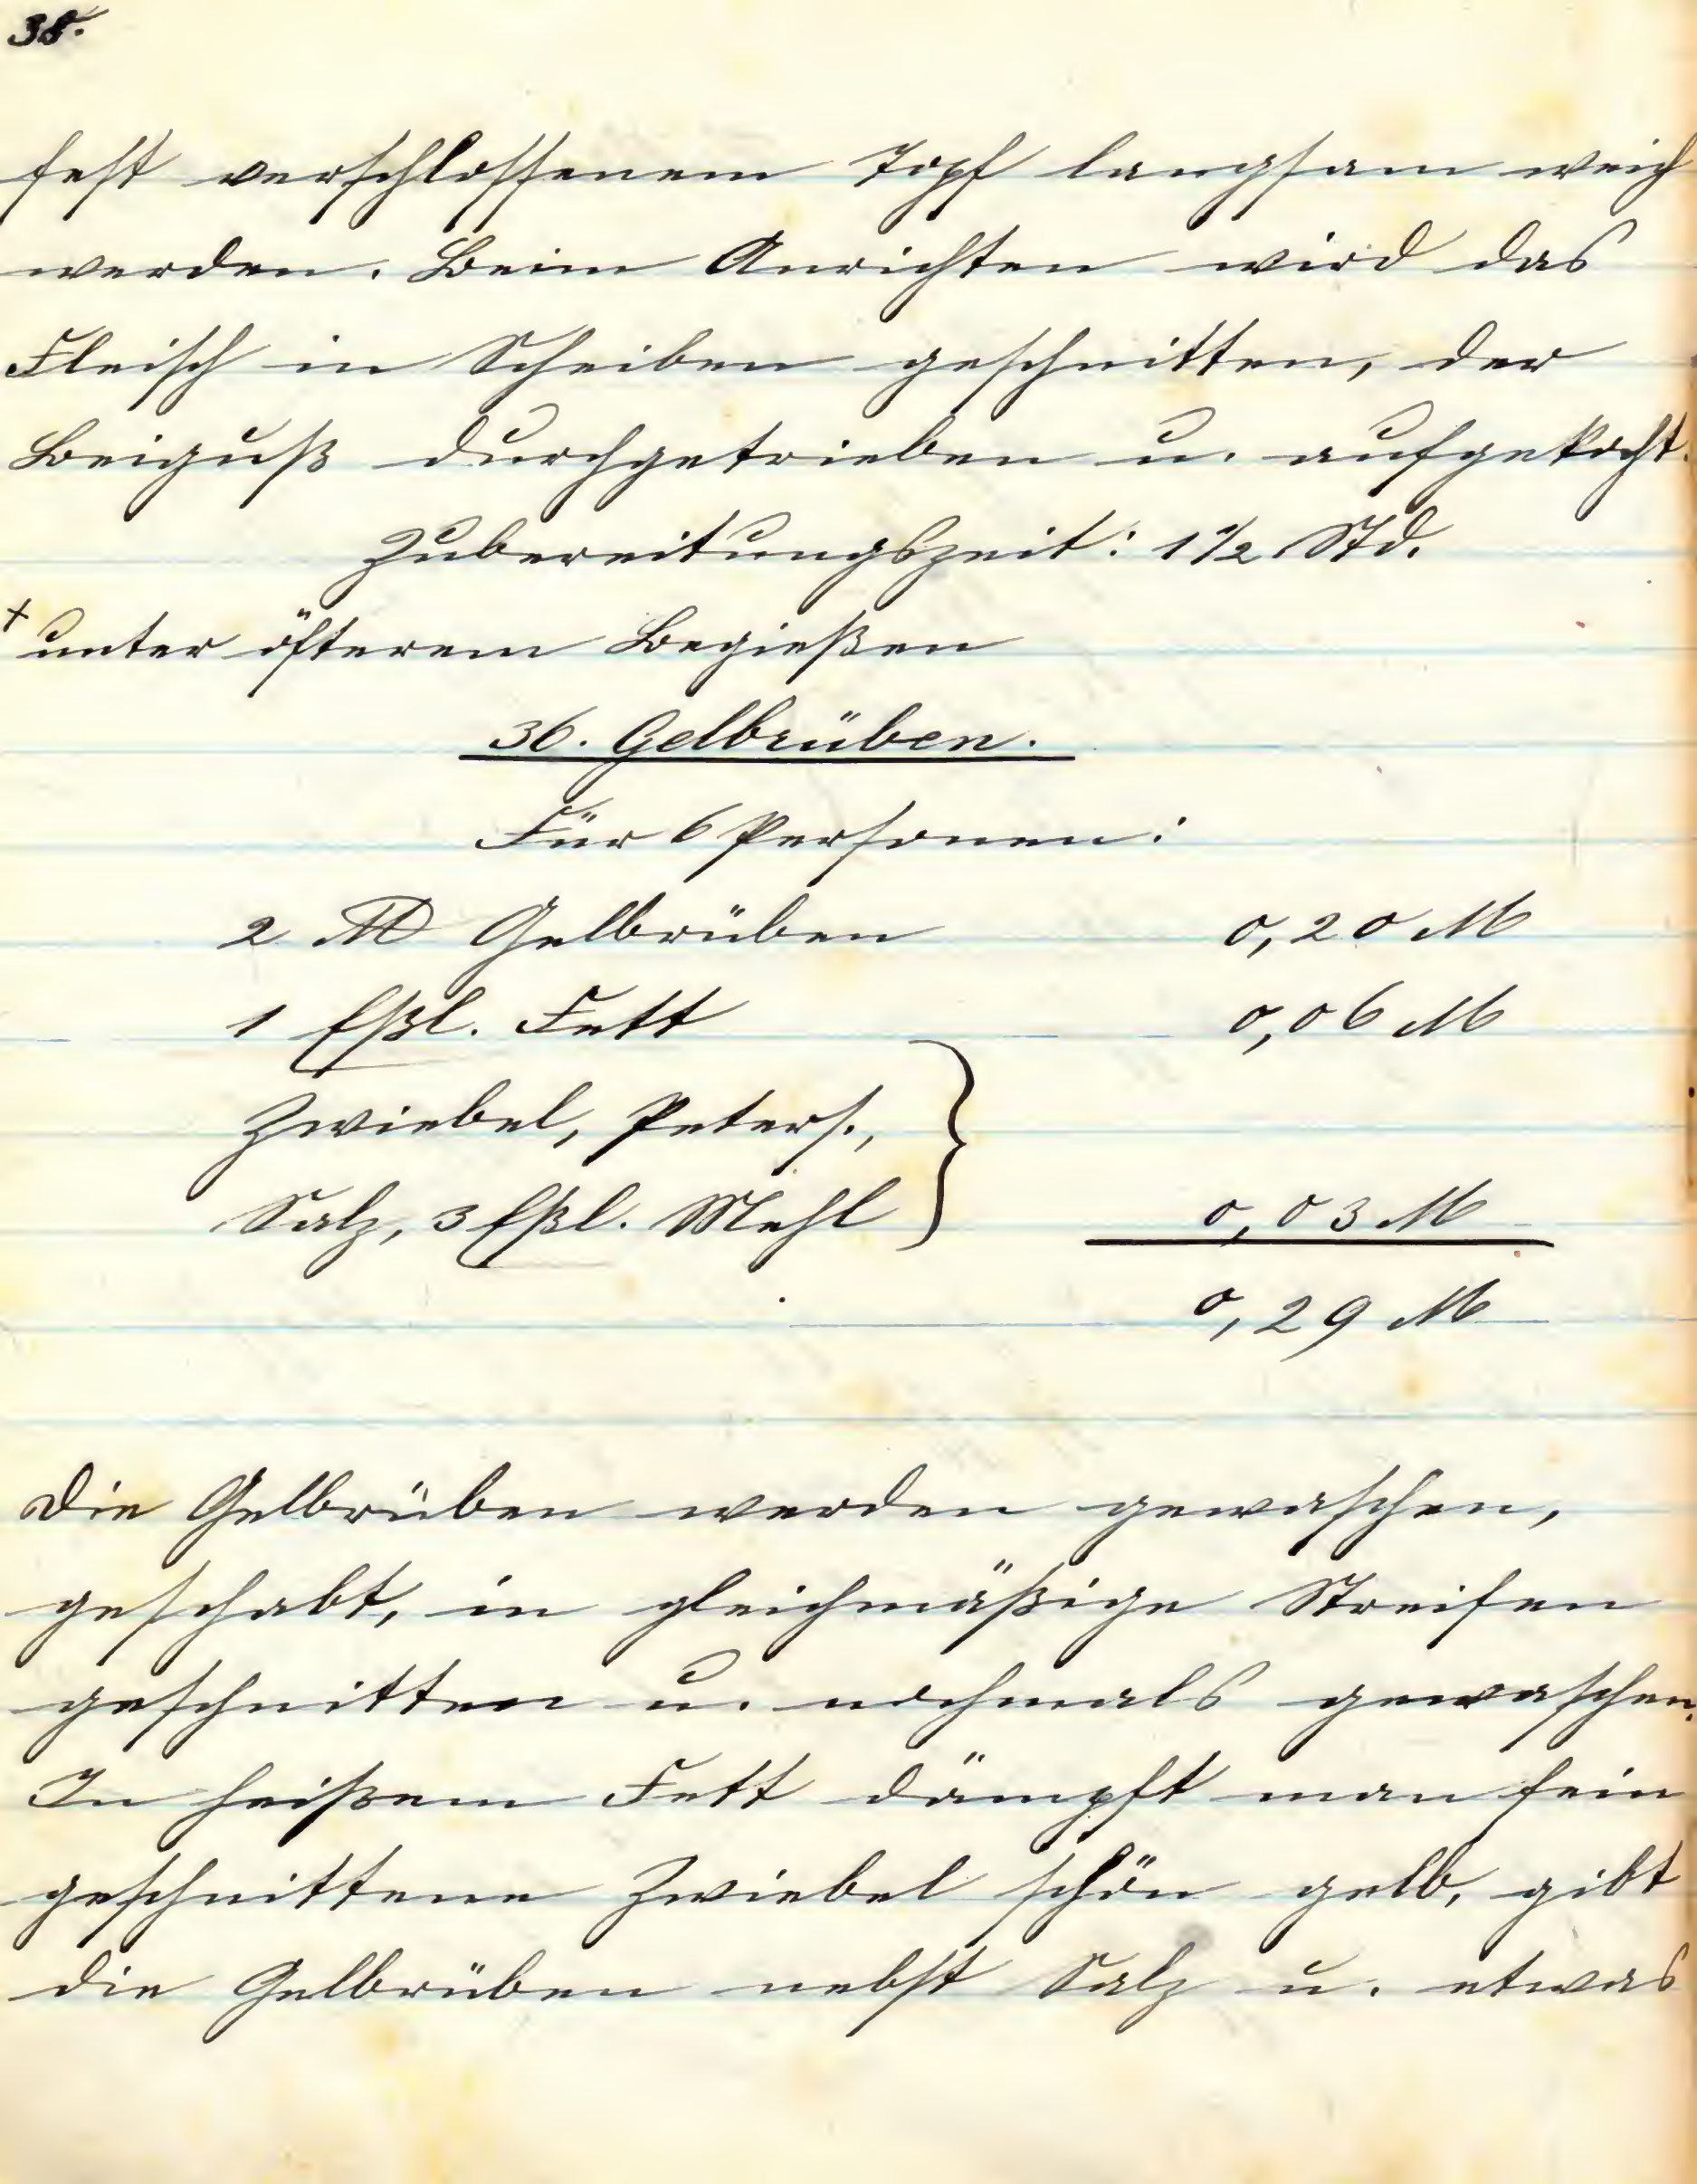 38.
fest verschlossenem Topf langsam weich
werden. Beim Anrichten wird das
Fleisch in Scheiben geschnitten, der
Beiguß durchgetrieben u. aufgekocht.
Zubereitungszeit: 1 1/2 Std.
+ unter öfterem Begießen
36. Gelbrüben.
Für 6 Personen:
2 ℔ Gelbrüben 0,20 M
1 Eßl. Fett 0,06 M
Zwiebel, Peters.,
Salz, 3 Eßl. Mehl } 0,03 M
0,29 M
Die Gelbrüben werden gewaschen,
geschabt, in gleichmäßige Streifen
geschnitten u. nochmals gewaschen.
In heißem Fett dämpft man fein
geschnittene Zwiebel schön gelb, gibt
die Gelbrüben nebst Salz u. etwas